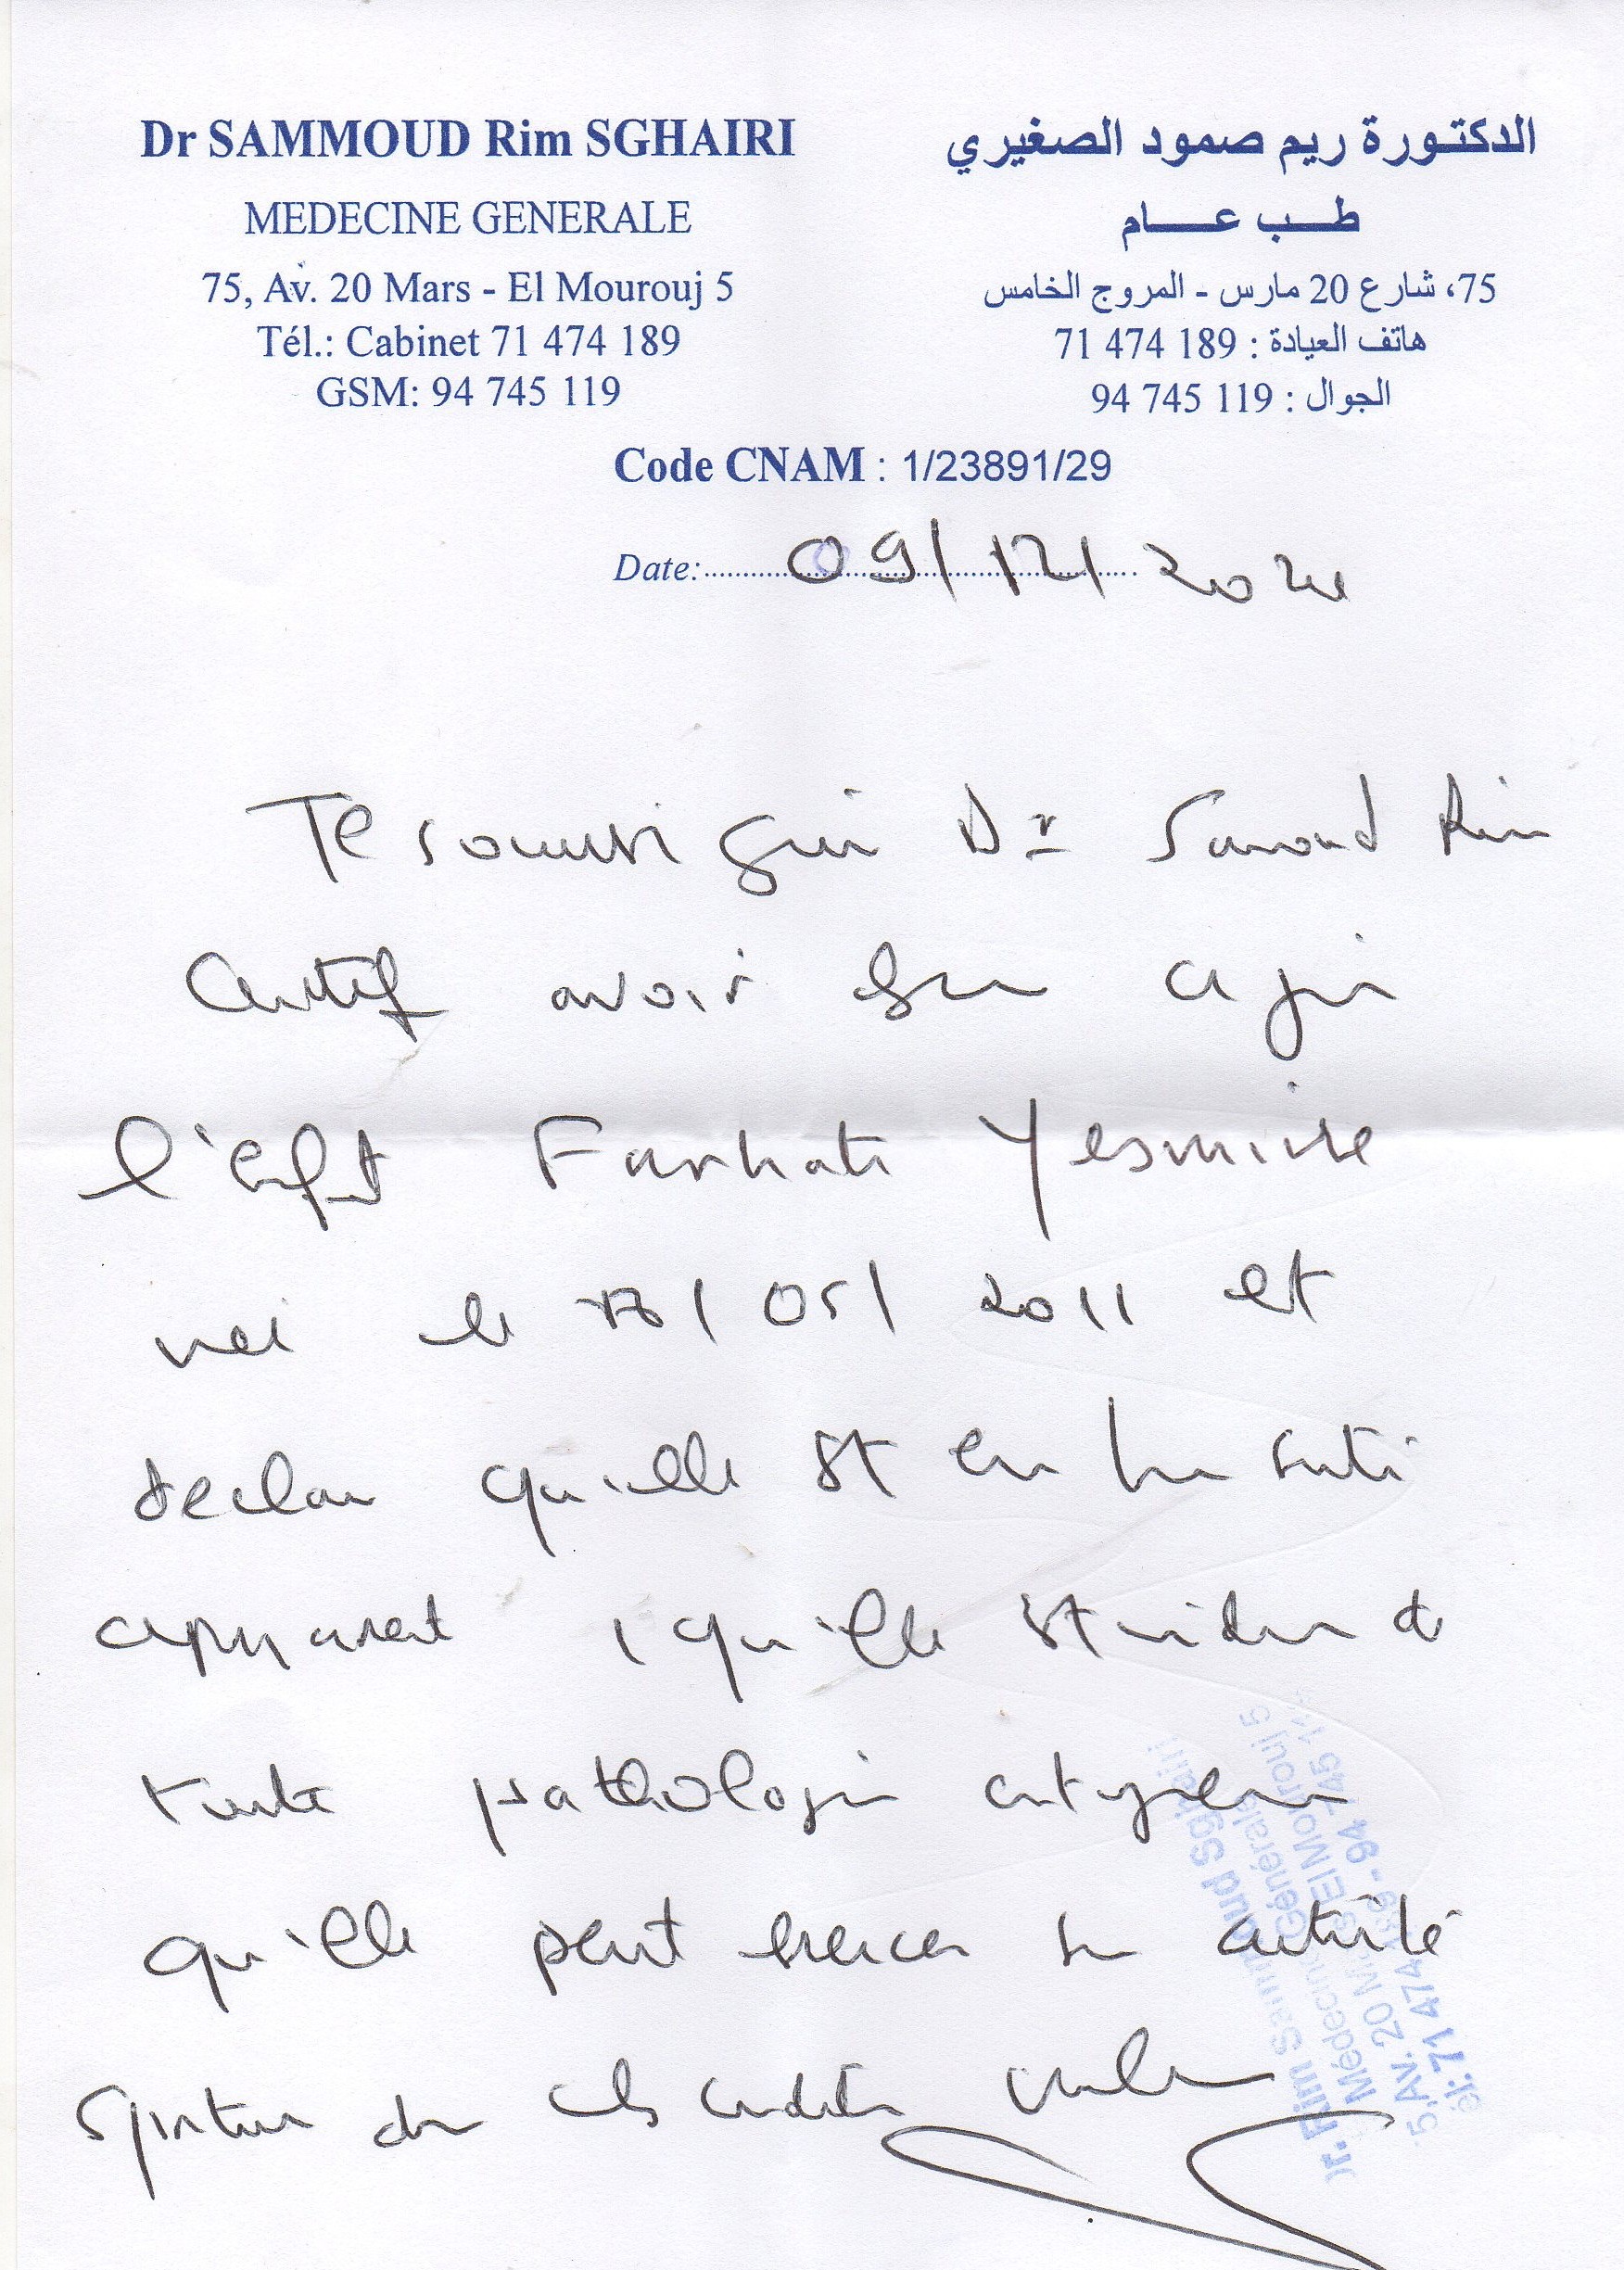 Dr SAMMOUD Rim SGHAIRI
MEDECINE GENERALE
75, Av. 20 Mars - El Mourouj 5
Tél.: Cabinet 71 474 189
GSM: 94 745 119
الدكتورة ريم صمود الصغيري
طب عام
75، شارع 20 مارس - المروج الخامس
هاتف العيادة : 189 474 71
الجوال : 119 745 94
Code CNAM : 1/23891/29
Date: 09/12/
Je soussigné Dr Sammoud Rim
Certifie avoir
l'enfant Farhati Yesmine
née le /05/2011 et
déclare qu'elle est en bonne santé
apparente, qu'elle est indemne de
toute pathologie
qu'elle peut exercer son activité
sportive dans les conditions
Dr. Rim Sammoud Sghairi
Médecine Générale
5, Av. 20 Mars El Mourouj 5
él: 71 474 - 94 745 11